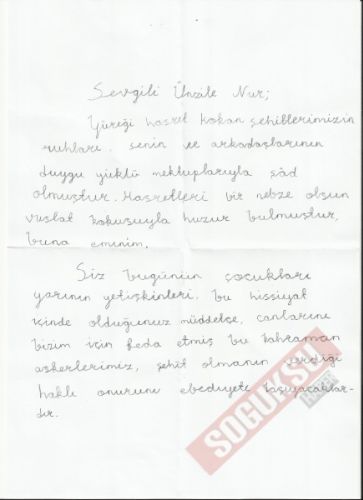 Sevgili Ünzile Nur;
Yüreği hasret kokan şehitlerimizin
ruhları, senin ve arkadaşlarının
duygu yüklü mektuplarıyla şâd
olmuştur. Hasretleri bir nebze olsun
vuslat kokusuyla huzur bulmuştur,
buna eminim.
Siz bugünün çocukları
yarının yetişkinleri, bu hissiyat
içinde olduğunuz müddetçe, canlarını
bizim için feda etmiş bu kahraman
askerlerimiz, şehit olmanın verdiği
haklı onurunu ebediyete taşıyacaklar-
dır.
SOĞUKSU
HABER